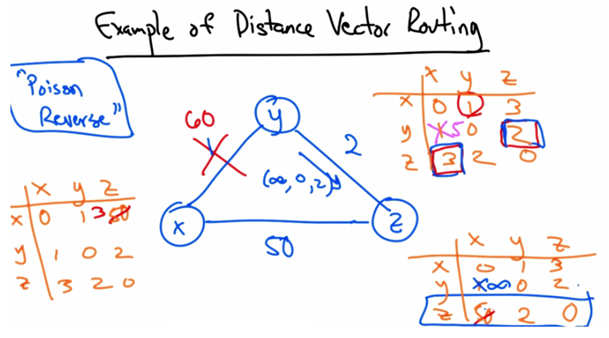 Example of Distance Vector Routing
"Poison
Reverse"
60
y
2
(∞, 0, 2)
x
z
50
x y z
x 0 1 3
y 5 0 2
z 3 2 0
x y z
x 0 1 3 50
y 1 0 2
z 3 2 0
x y z
x 0 1 3
y ∞ 0 2
z 50 2 0